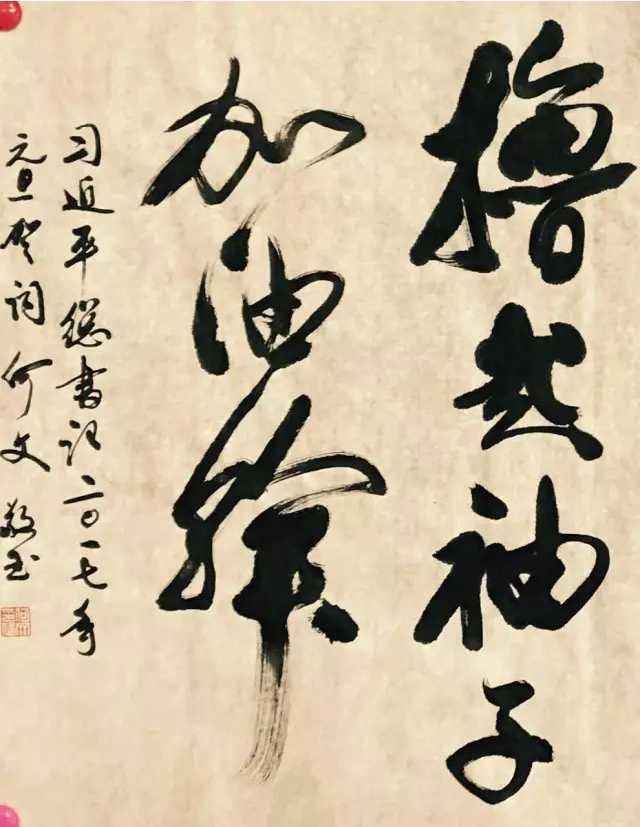 撸起袖子
加油幹
习近平总书记二〇一七年
元旦贺词 何文 敬书